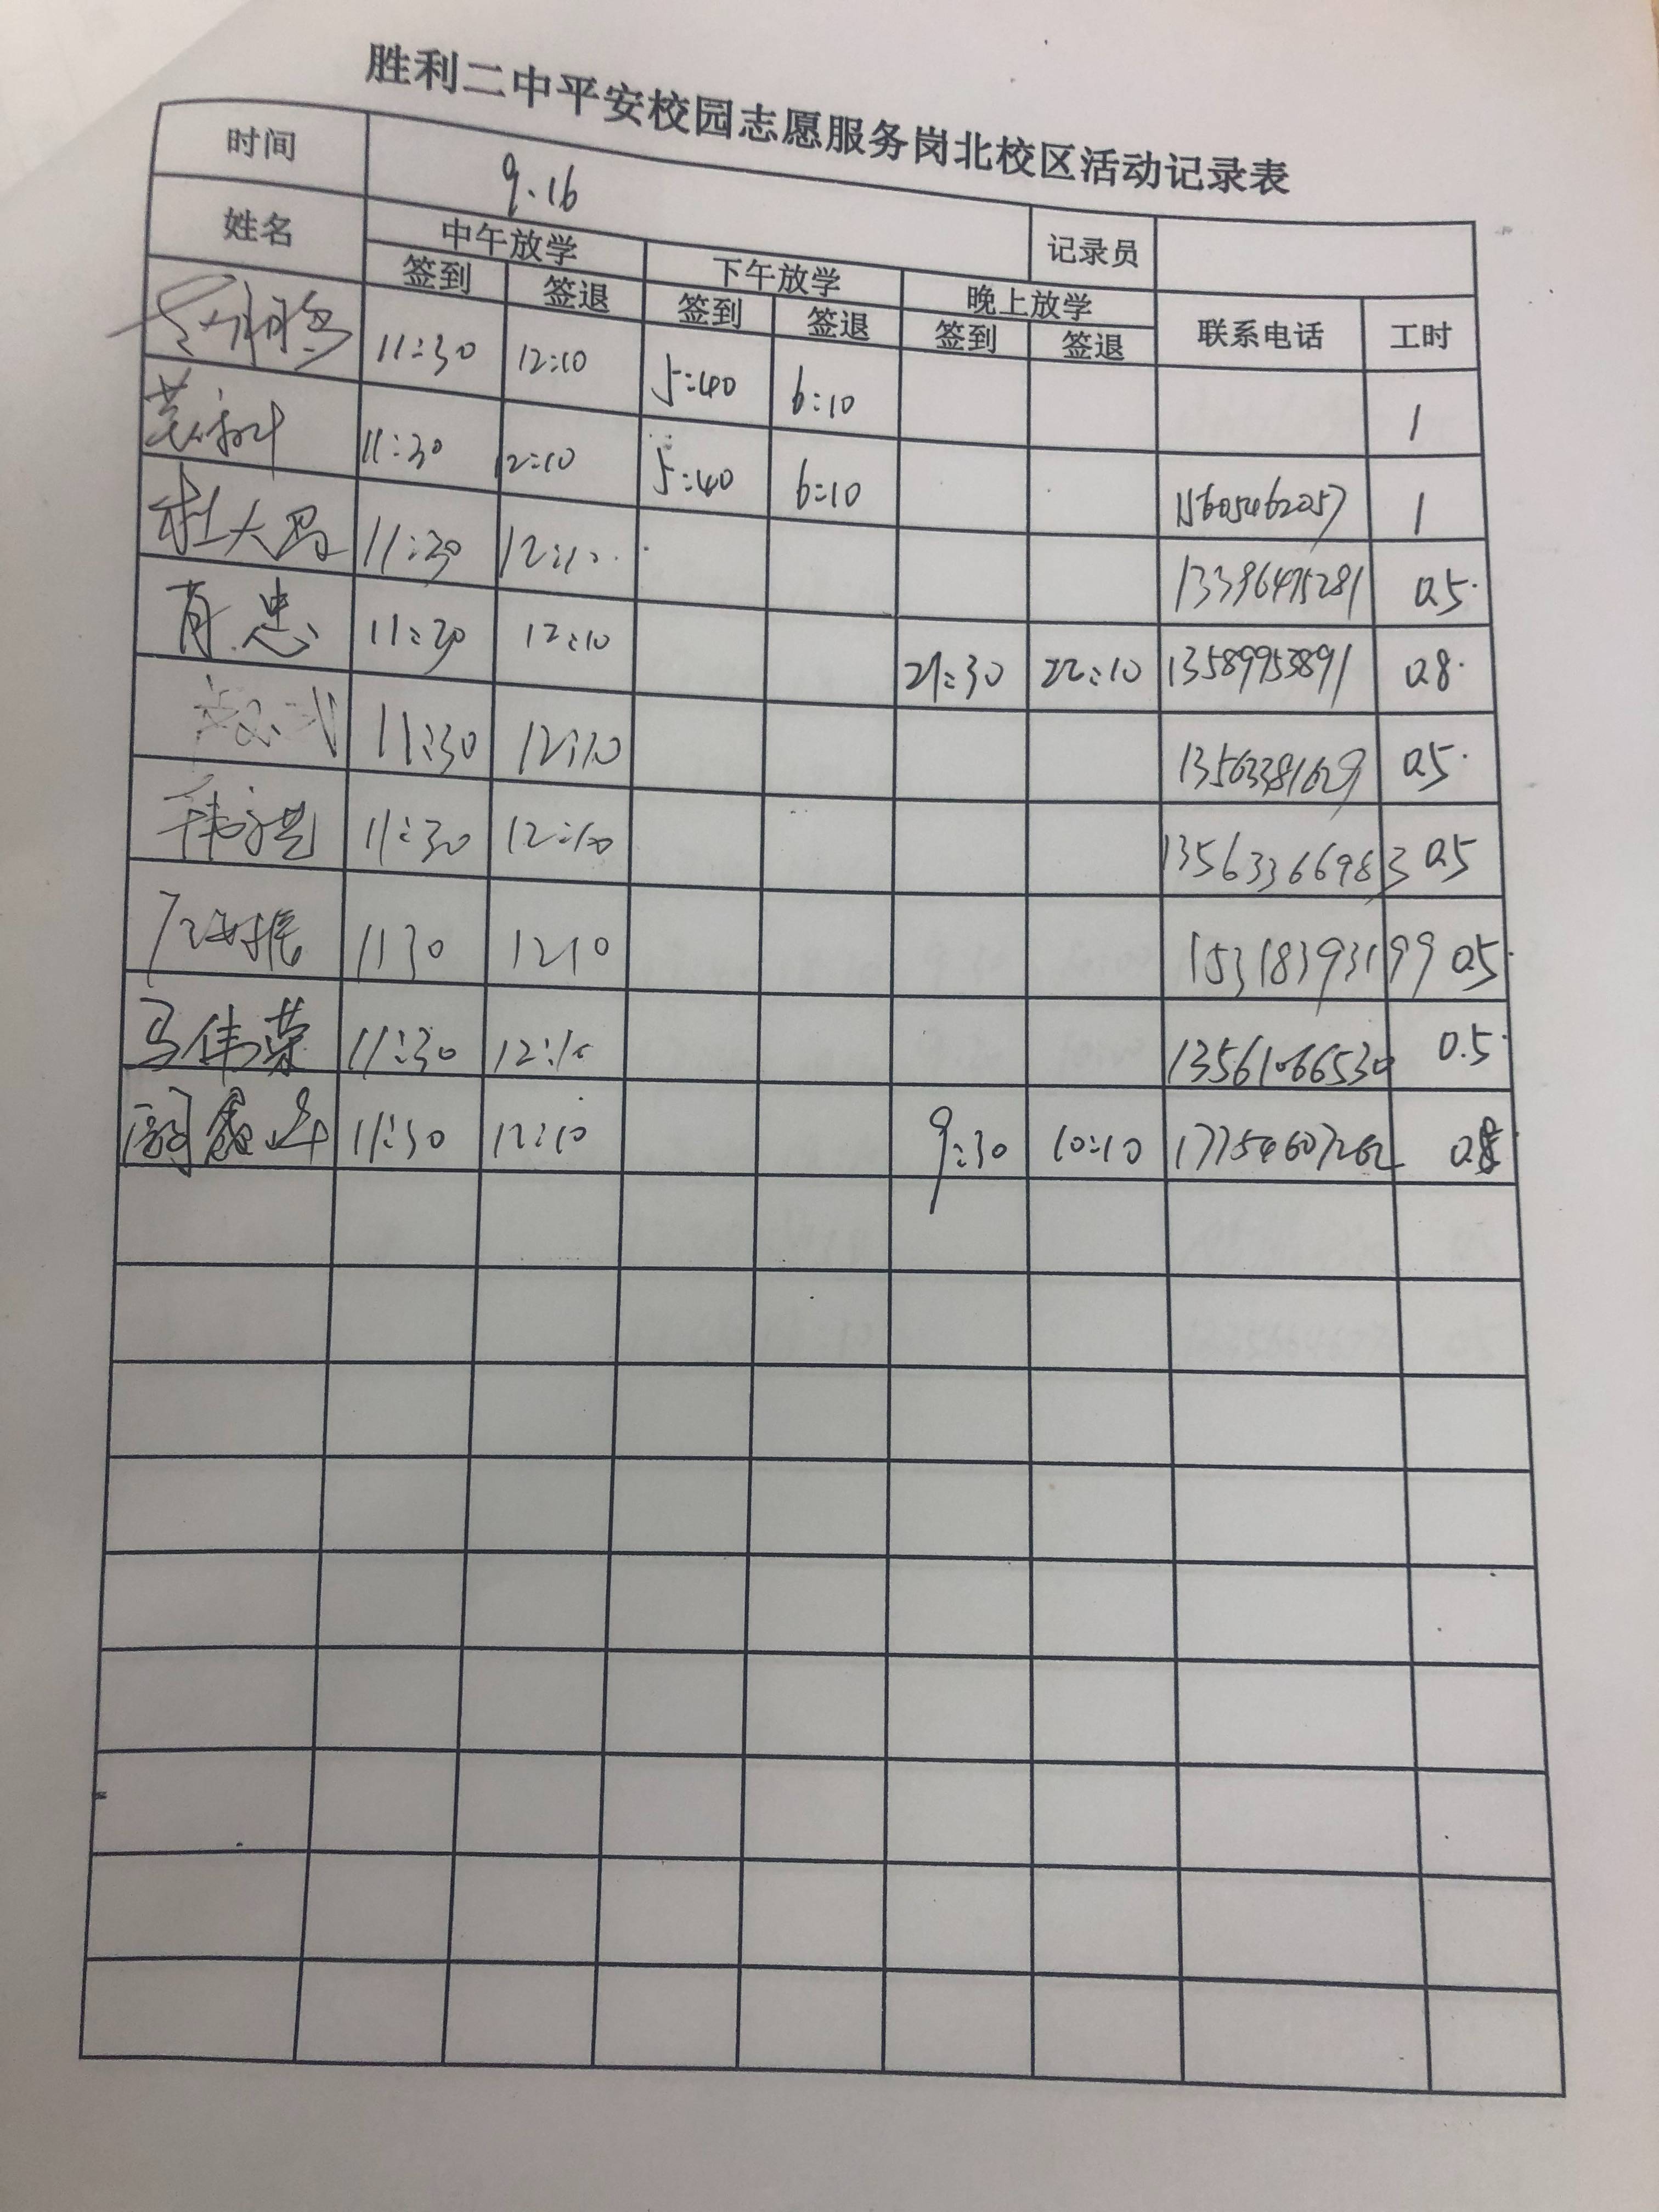 胜利二中平安校园志愿服务岗北校区活动记录表
时间 9.16 记录员
姓名 中午放学 下午放学 晚上放学 联系电话 工时
签到 签退 签到 签退 签到 签退
11:30 12:10 5:40 6:10 1
11:30 12:10 5:40 6:10 15605462057 1
杜大 11:30 12:10 13396475281 0.5
肖忠 11:30 12:10 21:30 22:10 13589953891 0.8
11:30 12:10 13563381629 0.5
11:30 12:10 13563366983 0.5
1130 1210 15318393199 0.5
马伟荣 11:30 12:10 13561066530 0.5
11:30 12:10 9:30 10:10 17754607262 0.8